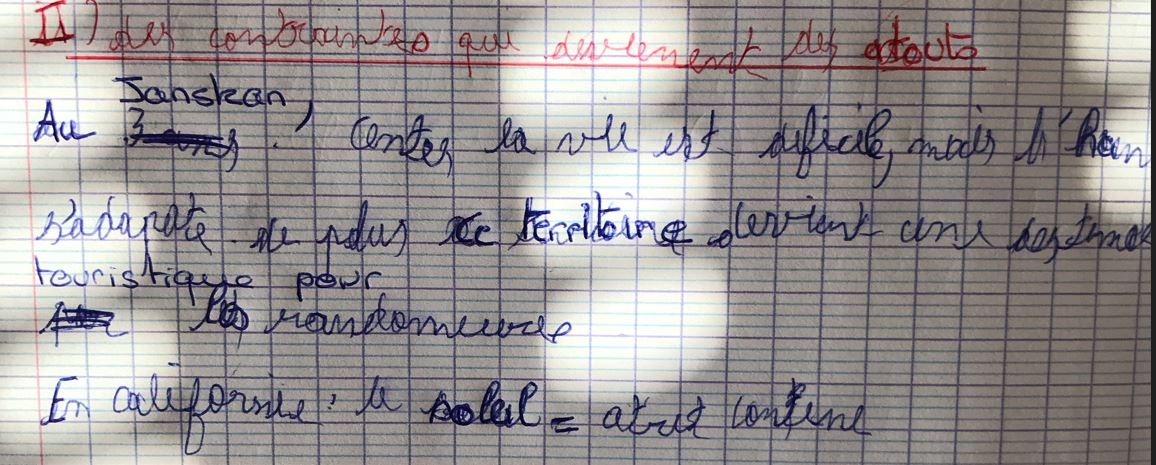 II) des contraintes qui deviennent des atouts
Janskan,
Au certes la vie est dificile, mais l'
s'adapate de plus ce territoire devient une
touristique pour
les randonneurs
En californie : le soleil = atout